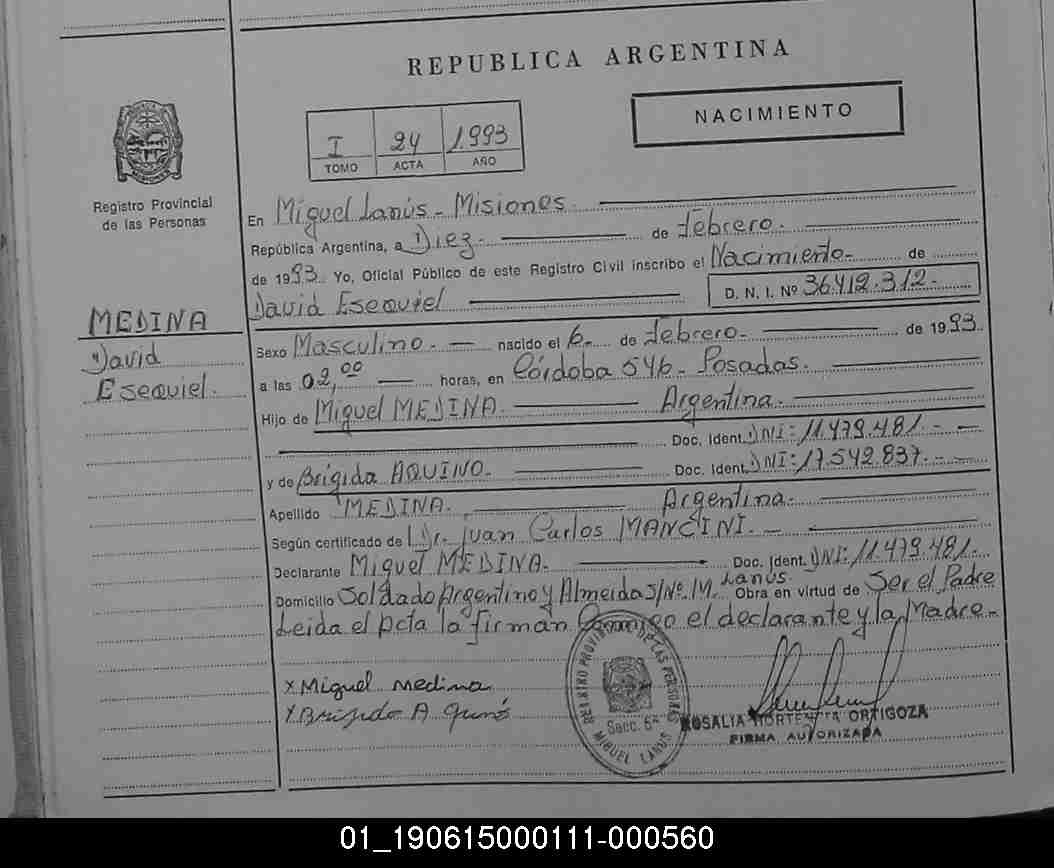 REPUBLICA ARGENTINA
NACIMIENTO
I 24 1.993
TOMO ACTA AÑO
Registro Provincial
de las Personas
MEDINA
David
Esequiel.
En Miguel Lanús - Misiones.
República Argentina, a Diez. de Febrero.
de 1993. Yo, Oficial Público de este Registro Civil inscribo el Nacimiento. de
David Esequiel D. N. I. Nº 36.412.312.
Sexo Masculino. nacido el 6. de Febrero. de 1993.
a las 02,00 horas, en Córdoba 546 - Posadas.
Hijo de Miguel MEDINA. Argentina.
Doc. Ident. DNI: 11.479.481.
y de Brígida AQUINO. Doc. Ident. DNI: 17.542.837.
Apellido MEDINA. Argentina.
Según certificado de Dr. Juan Carlos MANCINI.
Declarante Miguel MEDINA. Doc. Ident. DNI: 11.479.481.
Domicilio Soldado Argentino y Almeida S/Nº. M. Lanús. Obra en virtud de Ser el Padre
Leida el Acta la firman Conmigo el declarante y la Madre.
x Miguel Medina
x Brigida Aquino
REGISTRO PROVINCIAL DE LAS PERSONAS
Secc. 6ª
MIGUEL LANUS
ROSALIA HORTENCIA ORTIGOZA
FIRMA AUTORIZADA
01_190615000111-000560